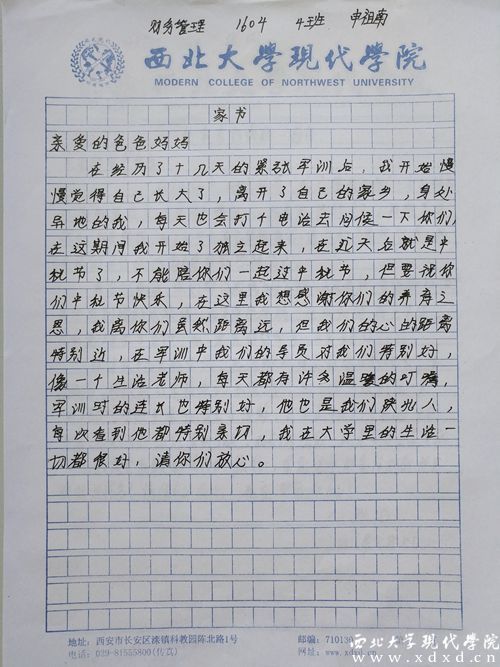 财务管理 1604 4班 申祖南
西北大學現代學院
MODERN COLLEGE OF NORTHWEST UNIVERSITY
家书
亲爱的爸爸妈妈
在经历了十几天的紧张军训后，我开始慢
慢觉得自己长大了，离开了自己的家乡，身处
异地的我，每天也会打个电话去问候一下你们，
在这期间我开始了独立起来，在几天后就是中
秋节了，不能陪你们一起过中秋节，但要说你
们中秋节快乐，在这里我想感谢你们的养育之
恩，我离你们虽然距离远，但我们的心的距离
特别近，在军训中我们的导员对我们特别好，
像一个生活老师，每天都有许多温暖的叮嘱，
军训时的连长也特别好，他也是我们陕北人，
每次看到他都特别亲切，我在大学里的生活一
切都很好，请你们放心。
地址：西安市长安区滦镇科教园陈北路1号
电话：029-81555800(传真)
邮编：71013
网址：www.xdxd.cn
西北大学现代学院
www.xdxd.cn